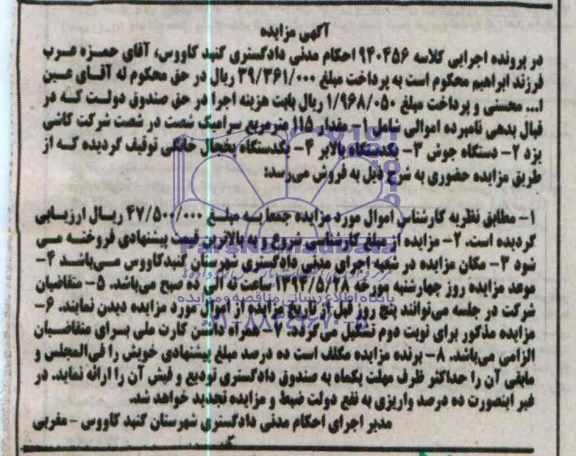 آگهی مزایده
در پرونده اجرایی کلاسه ۹۴۰۴۵۶ احکام مدنی دادگستری گنبد کاووس، آقای حمزه عرب
فرزند ابراهیم محکوم است به پرداخت مبلغ ۳۹/۳۶۱/۰۰۰ ریال در حق محکوم له آقای عین
ا... محسنی و پرداخت مبلغ ۱/۹۶۸/۰۵۰ ریال بابت هزینه اجرا در حق صندوق دولت که در
قبال بدهی نامبرده اموالی شامل ۱- مقدار ۱۱۵ مترمربع سرامیک شصت در شصت شرکت کاشی
یزد ۲- دستگاه جوش ۳- یکدستگاه بالابر ۴- یکدستگاه یخچال خانگی توقیف گردیده که از
طریق مزایده حضوری به شرح ذیل به فروش می‌رسد:
۱- مطابق نظریه کارشناس اموال مورد مزایده جمعا به مبلغ ۴۷/۵۰۰/۰۰۰ ریال ارزیابی
گردیده است. ۲- مزایده از مبلغ کارشناسی شروع و به بالاترین قیمت پیشنهادی فروخته می
شود ۳- مکان مزایده در شعبه اجرای مدنی دادگستری شهرستان گنبدکاووس می‌باشد ۴-
موعد مزایده روز چهارشنبه مورخه ۱۳۹۴/۵/۲۸ ساعت نه الی ده صبح می‌باشد. ۵- متقاضیان
شرکت در جلسه می‌توانند پنج روز قبل از تاریخ مزایده از اموال مورد مزایده دیدن نمایند. ۶-
مزایده مذکور برای نوبت دوم تشکیل می‌گردد. ۷- همراه داشتن کارت ملی برای متقاضیان
الزامی می‌باشد. ۸- برنده مزایده مکلف است ده درصد مبلغ پیشنهادی خویش را فی‌المجلس و
مابقی آن را حداکثر ظرف مهلت یکماه به صندوق دادگستری تودیع و فیش آن را ارائه نماید. در
غیر اینصورت ده درصد واریزی به نفع دولت ضبط و مزایده تجدید خواهد شد.
مدیر اجرای احکام مدنی دادگستری شهرستان گنبد کاووس - مقربی
پایگاه اطلاع رسانی مناقصه و مزایده